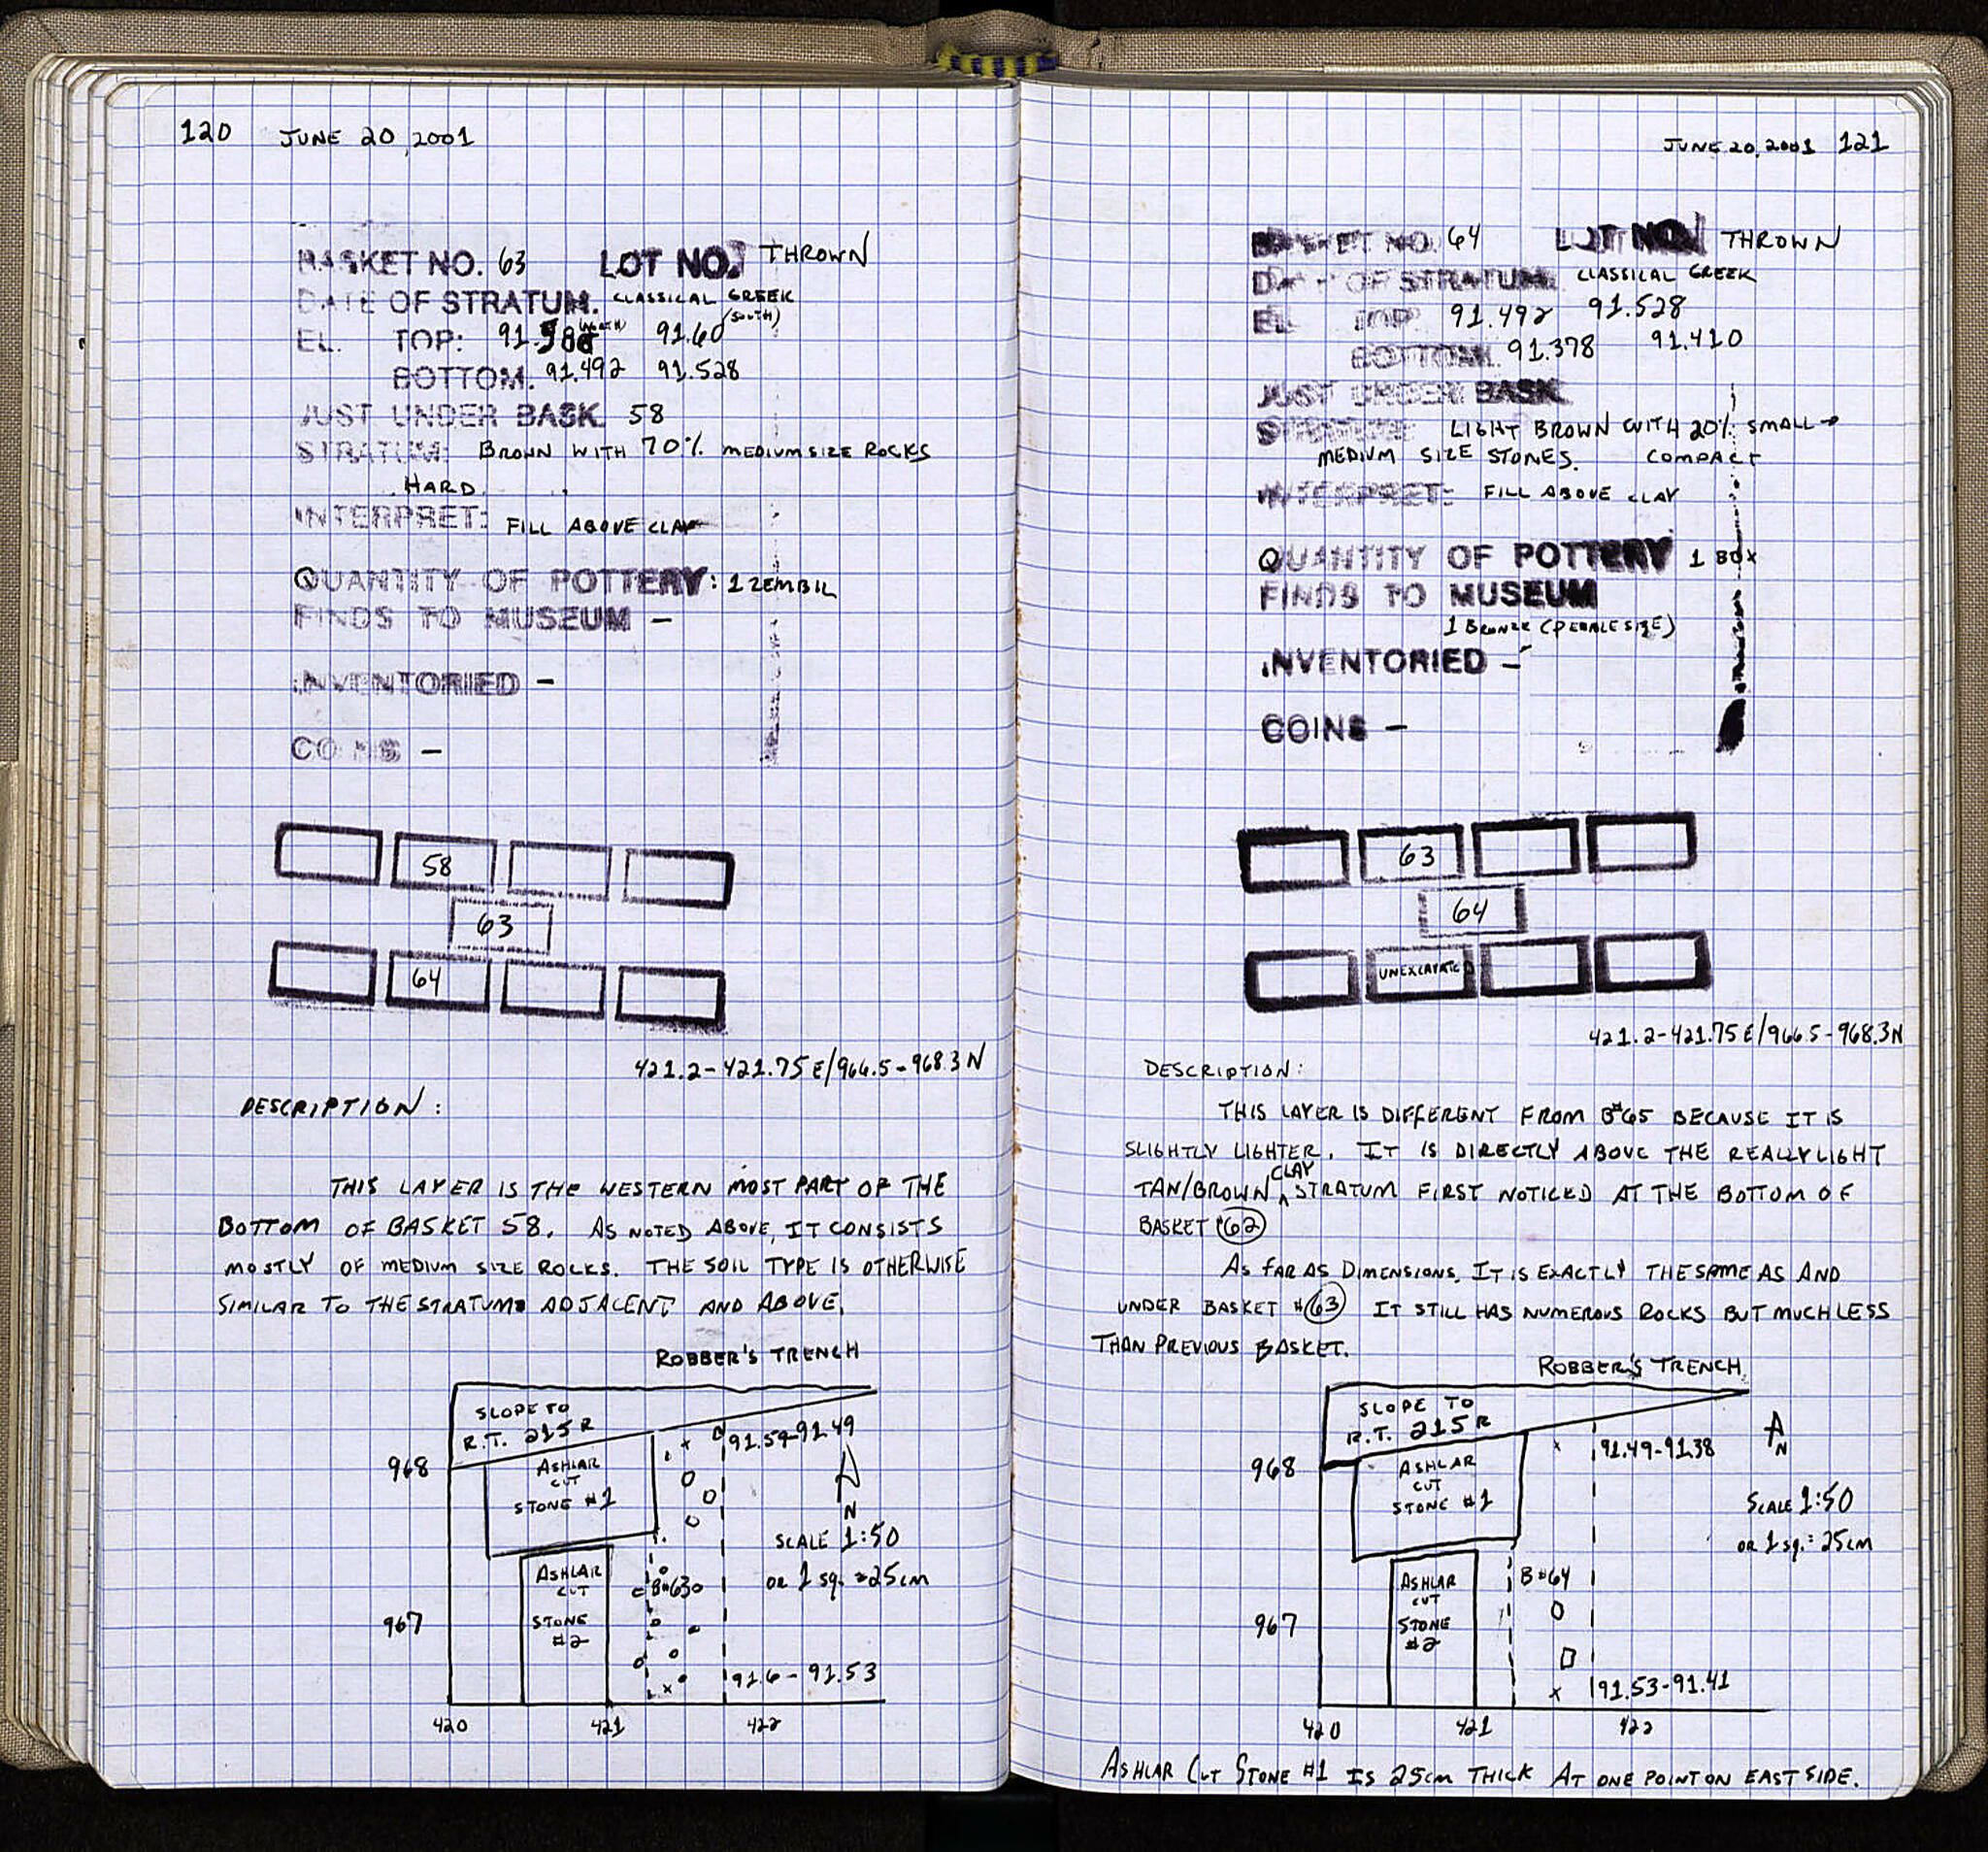 120 JUNE 20, 2001
BASKET NO. 63 LOT NO. THROWN
DATE OF STRATUM. CLASSICAL GREEK
EL. TOP: (NORTH) 91.60 (SOUTH)
BOTTOM. 91.492 91.528
JUST UNDER BASK. 58
STRATUM: BROWN WITH 70% MEDIUM SIZE ROCKS
HARD.
INTERPRET: FILL ABOVE CLAY
QUANTITY OF POTTERY: 1 ZEMBIL
FINDS TO MUSEUM –
INVENTORIED –
COINS –
58
63
64
421.2-421.75 E/966.5-968.3 N
DESCRIPTION:
THIS LAYER IS THE WESTERN MOST PART OF THE
BOTTOM OF BASKET 58. AS NOTED ABOVE, IT CONSISTS
MOSTLY OF MEDIUM SIZE ROCKS. THE SOIL TYPE IS OTHERWISE
SIMILAR TO THE STRATUM ADJACENT AND ABOVE.
ROBBER'S TRENCH
SLOPE TO
R.T. 215 R
91.59-91.49
968
ASHLAR
CUT
STONE #1
N
SCALE 1:50
OR 1 sq. = 25cm
ASHLAR
CUT
STONE
#2
B#63
967
91.6 - 91.53
420 421 422
JUNE 20, 2001 121
BASKET NO. 64 LOT NO. THROWN
DATE OF STRATUM. CLASSICAL GREEK
EL. TOP: 91.492 91.528
BOTTOM. 91.378 91.410
JUST UNDER BASK.
STRATUM: LIGHT BROWN WITH 20% SMALL →
MEDIUM SIZE STONES. COMPACT
INTERPRET: FILL ABOVE CLAY
QUANTITY OF POTTERY 1 BOX
FINDS TO MUSEUM
1 BRONZE (PEBBLE SIZE)
INVENTORIED –
COINS –
63
64
UNEXCAVATED
421.2-421.75 E/966.5-968.3N
DESCRIPTION:
THIS LAYER IS DIFFERENT FROM B#65 BECAUSE IT IS
SLIGHTLY LIGHTER. IT IS DIRECTLY ABOVE THE REALLY LIGHT
TAN/BROWN CLAY STRATUM FIRST NOTICED AT THE BOTTOM OF
BASKET #62
AS FAR AS DIMENSIONS, IT IS EXACTLY THE SAME AS AND
UNDER BASKET #63 IT STILL HAS NUMEROUS ROCKS BUT MUCH LESS
THAN PREVIOUS BASKET.
ROBBER'S TRENCH
SLOPE TO
R.T. 215 R
91.49-91.38
N
968
ASHLAR
CUT
STONE #1
SCALE 1:50
OR 1 sq. = 25cm
ASHLAR
CUT
STONE
#2
B#64
967
91.53-91.41
420 421 422
ASHLAR CUT STONE #1 IS 25cm THICK AT ONE POINT ON EAST SIDE.